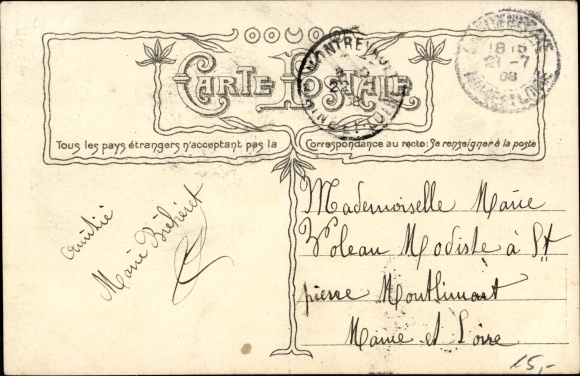 CARTE POSTALE
Tous les pays étrangers n'acceptant pas la Correspondance au recto: Se renseigner à la poste
MONTREVAULT
18 15
21 -7
08
MAINE-ET-LOIRE
Amitié
Marie
Mademoiselle Marie
Modiste à St
pierre Montlimart
Maine et Loire
15,-